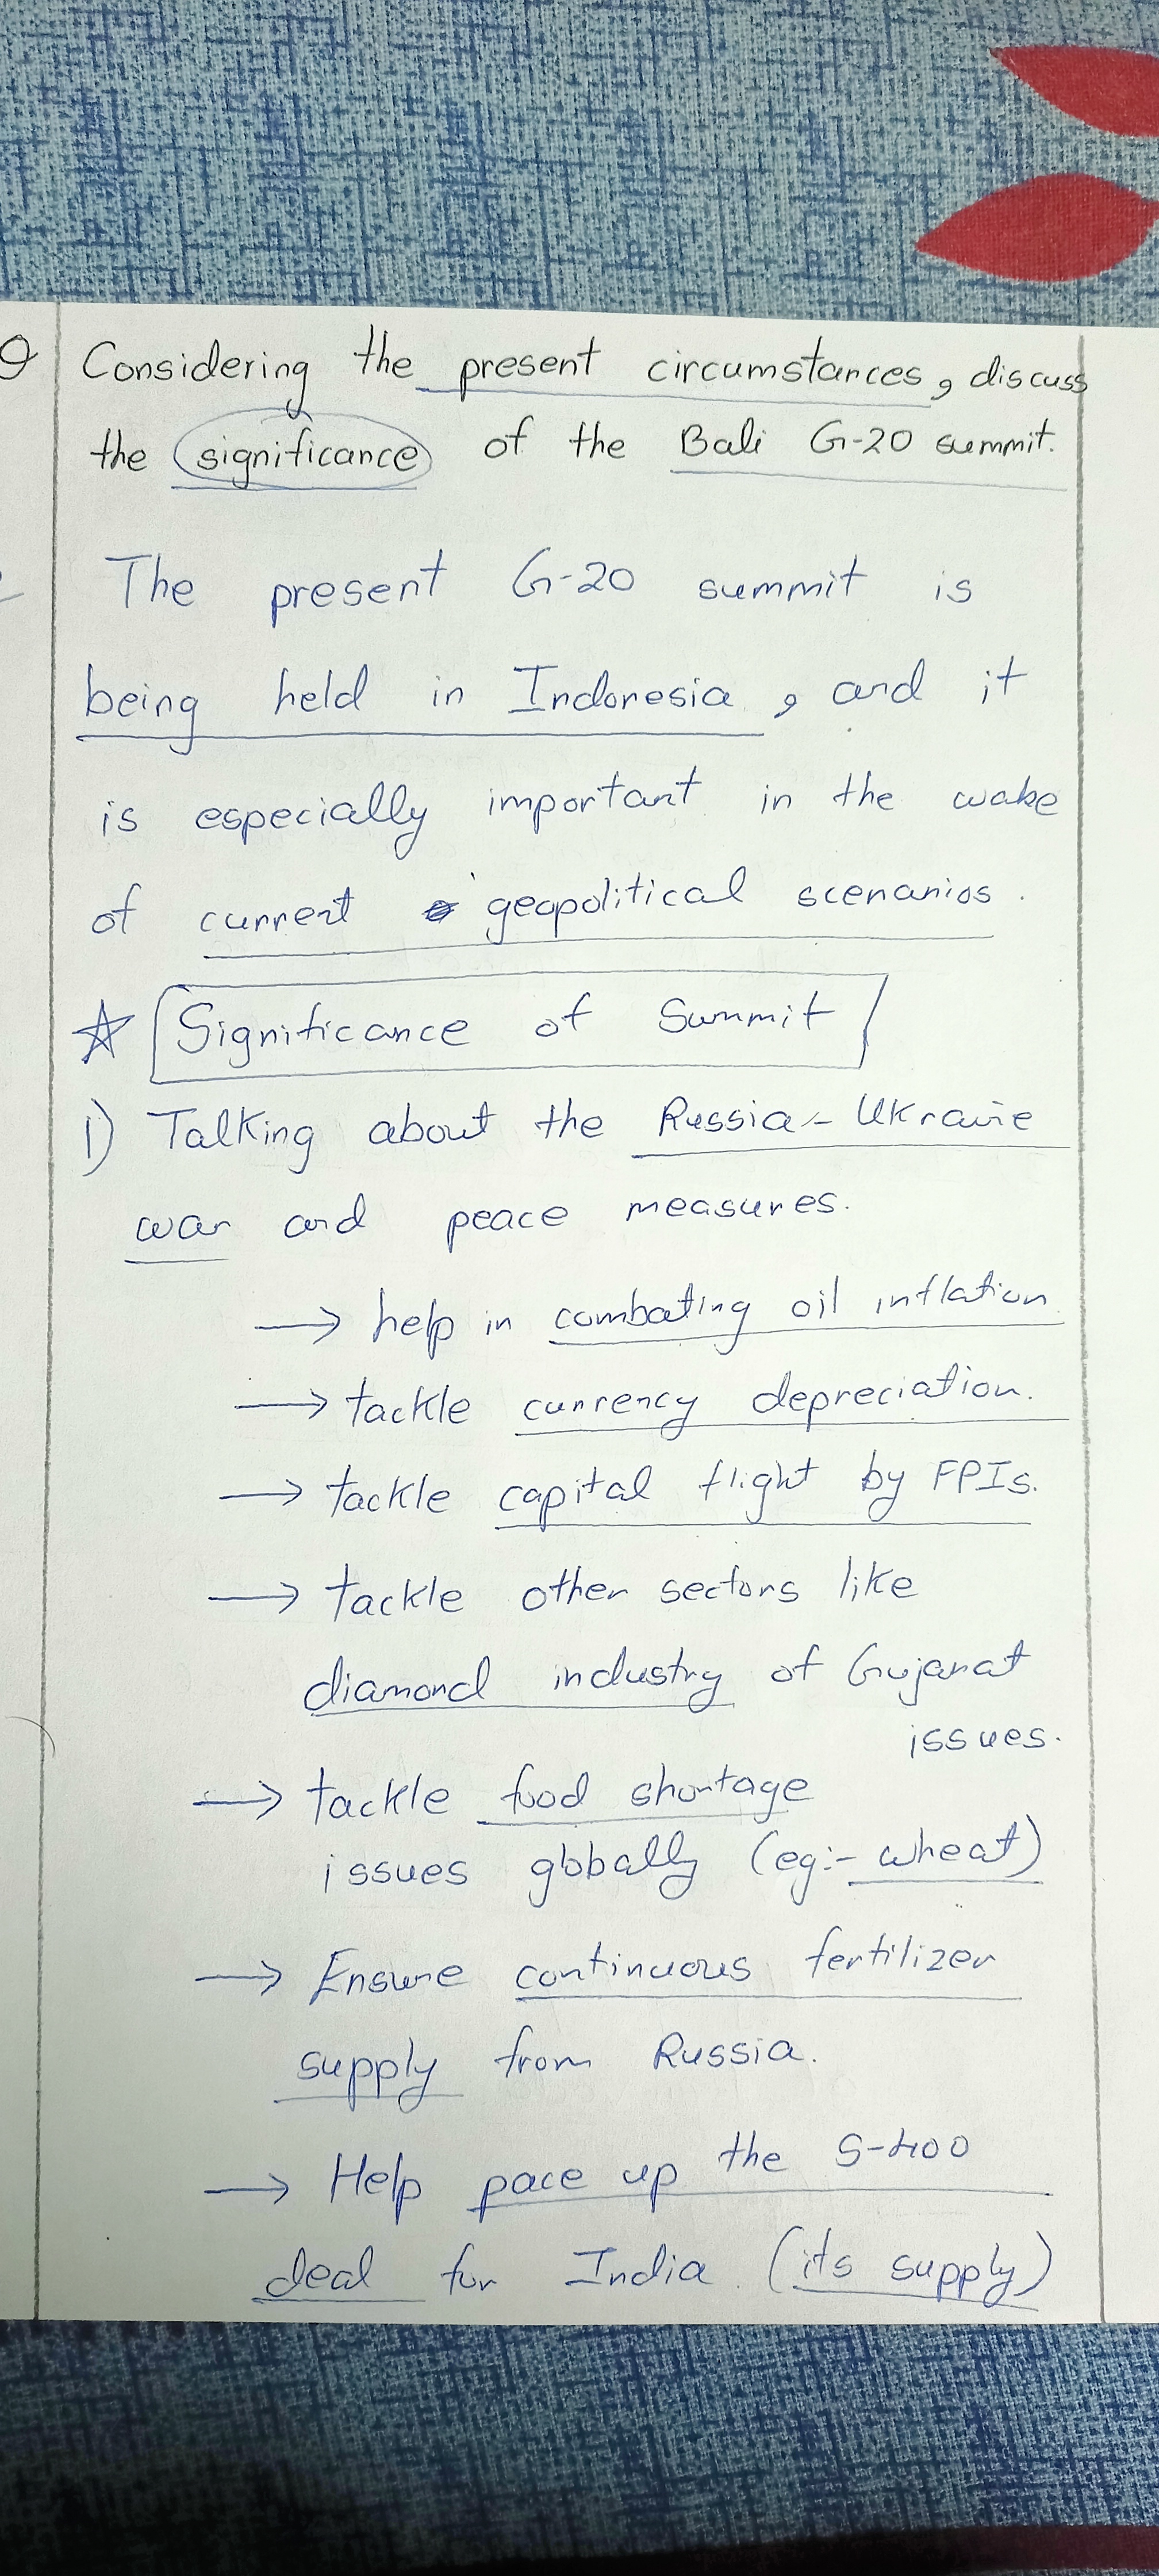 Q Considering the present circumstances, discuss
the significance of the Bali G-20 summit.
The present G-20 summit is
being held in Indonesia, and it
is especially important in the wake
of current geopolitical scenarios.
Significance of Summit
1) Talking about the Russia - Ukraine
war and peace measures.
→ help in combating oil inflation
→ tackle currency depreciation.
→ tackle capital flight by FPIs.
→ tackle other sectors like
diamond industry of Gujarat
issues.
→ tackle food shortage
issues globally (eg:- wheat)
→ Ensure continuous fertilizer
supply from Russia.
→ Help pace up the S-400
deal for India. (its supply)